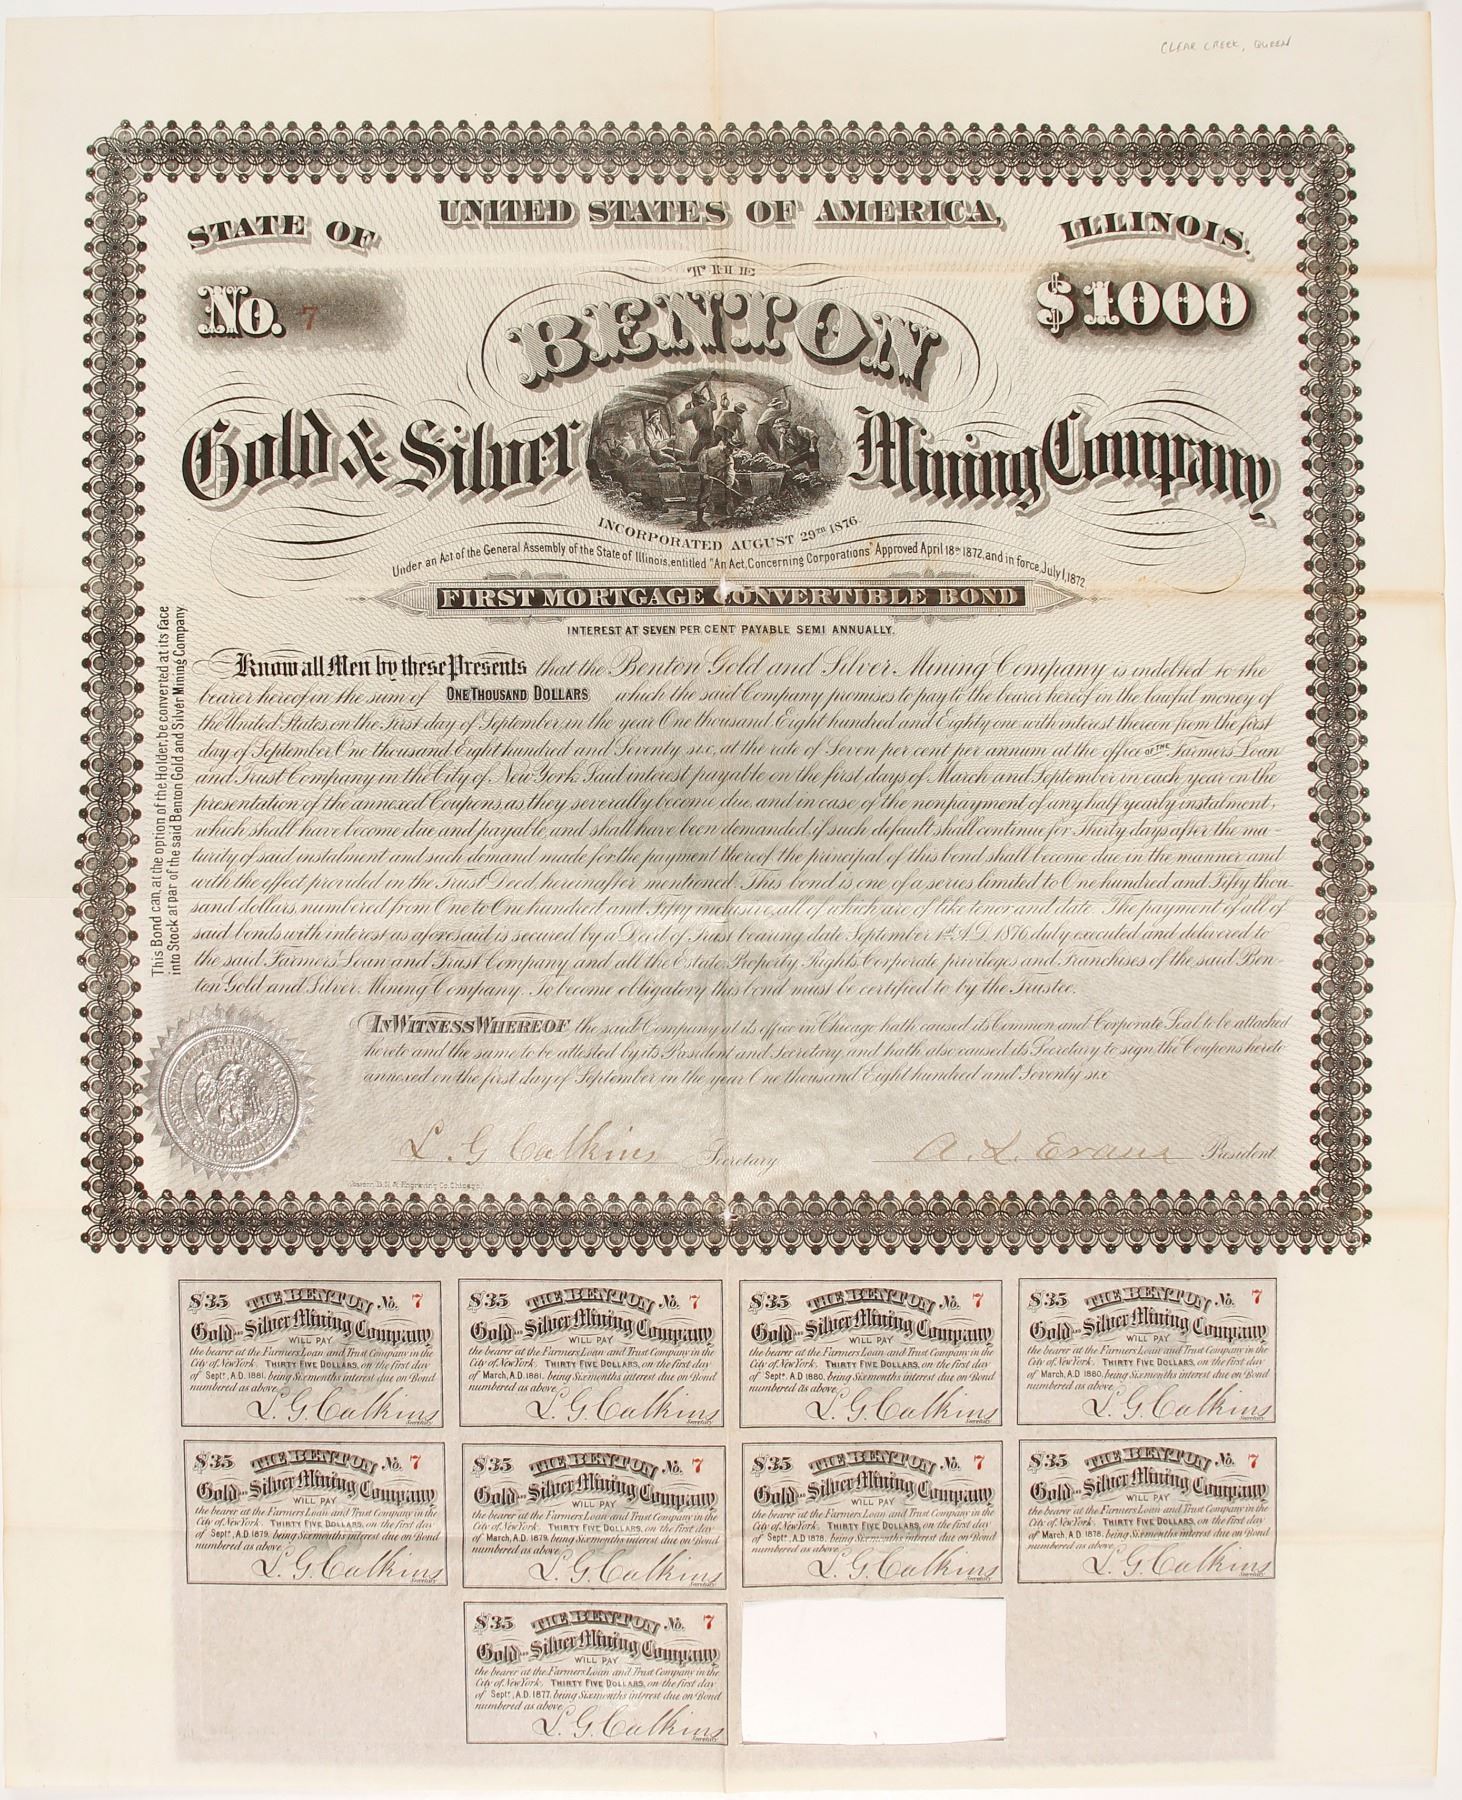 CLEAR CREEK, QUEEN
UNITED STATES OF AMERICA,
STATE OF ILLINOIS.
No. 7
$1000
THE
BENTON
Gold & Silver Mining Company
INCORPORATED AUGUST 29TH 1876
Under an Act of the General Assembly of the State of Illinois, entitled "An Act, Concerning Corporations" Approved April 18th 1872, and in force, July 1, 1872
FIRST MORTGAGE CONVERTIBLE BOND
INTEREST AT SEVEN PER CENT PAYABLE SEMI ANNUALLY.
This Bond can, at the option of the Holder, be converted at its face
into Stock at par of the said Benton Gold and Silver Mining Company
Know all Men by these Presents that the Benton Gold and Silver Mining Company is indebted to the
bearer hereof in the sum of ONE THOUSAND DOLLARS which the said Company promises to pay to the bearer hereof in the lawful money of
the United States, on the First day of September in the year One thousand Eight hundred and Eighty one with interest thereon from the first
day of September One thousand Eight hundred and Seventy six, at the rate of Seven per cent per annum at the office OF THE Farmers Loan
and Trust Company in the City of New York. Said interest payable on the first days of March and September in each year on the
presentation of the annexed Coupons, as they severally become due, and in case of the nonpayment of any half yearly instalment,
which shall have become due and payable, and shall have been demanded, if such default shall continue for Thirty days after the ma-
turity of said instalment and such demand made for the payment thereof, the principal of this bond shall become due in the manner and
with the effect provided in the Trust Deed, hereinafter mentioned. This bond is one of a series limited to One hundred and Fifty thou-
sand dollars, numbered from One to One hundred and Fifty inclusive, all of which are of like tenor and date. The payment of all of
said bonds with interest as aforesaid is secured by a Deed of Trust bearing date September 1st A.D. 1876, duly executed and delivered to
the said Farmers' Loan and Trust Company and all the Estate, Property, Rights, Corporate privileges and Franchises of the said Ben-
ton Gold and Silver Mining Company. To become obligatory this bond must be certified to by the Trustee.
IN WITNESS WHEREOF the said Company at its office in Chicago hath caused its Common and Corporate Seal to be attached
hereto and the same to be attested by its President and Secretary, and hath also caused its Secretary to sign the Coupons hereto
annexed on the first day of September in the year One thousand Eight hundred and Seventy six
L. G. Calkins Secretary A. L. Evans President
B.N. & Engraving Co. Chicago.
$35 THE BENTON No. 7
Gold and Silver Mining Company
WILL PAY
the bearer at the Farmers Loan and Trust Company in the
City of New York, THIRTY FIVE DOLLARS, on the first day
of Sept., A.D. 1881, being Six months interest due on Bond
numbered as above.
L. G. Calkins
Secretary
$35 THE BENTON No. 7
Gold and Silver Mining Company
WILL PAY
the bearer at the Farmers Loan and Trust Company in the
City of New York, THIRTY FIVE DOLLARS, on the first day
of March, A.D. 1881, being Six months interest due on Bond
numbered as above.
L. G. Calkins
Secretary
$35 THE BENTON No. 7
Gold and Silver Mining Company
WILL PAY
the bearer at the Farmers Loan and Trust Company in the
City of New York, THIRTY FIVE DOLLARS, on the first day
of Sept., A.D. 1880, being Six months interest due on Bond
numbered as above.
L. G. Calkins
Secretary
$35 THE BENTON No. 7
Gold and Silver Mining Company
WILL PAY
the bearer at the Farmers Loan and Trust Company in the
City of New York, THIRTY FIVE DOLLARS, on the first day
of March, A.D. 1880, being Six months interest due on Bond
numbered as above.
L. G. Calkins
Secretary
$35 THE BENTON No. 7
Gold and Silver Mining Company
WILL PAY
the bearer at the Farmers Loan and Trust Company in the
City of New York, THIRTY FIVE DOLLARS, on the first day
of Sept., A.D. 1879, being Six months interest due on Bond
numbered as above.
L. G. Calkins
Secretary
$35 THE BENTON No. 7
Gold and Silver Mining Company
WILL PAY
the bearer at the Farmers Loan and Trust Company in the
City of New York, THIRTY FIVE DOLLARS, on the first day
of March, A.D. 1879, being Six months interest due on Bond
numbered as above.
L. G. Calkins
Secretary
$35 THE BENTON No. 7
Gold and Silver Mining Company
WILL PAY
the bearer at the Farmers Loan and Trust Company in the
City of New York, THIRTY FIVE DOLLARS, on the first day
of Sept., A.D. 1878, being Six months interest due on Bond
numbered as above.
L. G. Calkins
Secretary
$35 THE BENTON No. 7
Gold and Silver Mining Company
WILL PAY
the bearer at the Farmers Loan and Trust Company in the
City of New York, THIRTY FIVE DOLLARS, on the first day
of March, A.D. 1878, being Six months interest due on Bond
numbered as above.
L. G. Calkins
Secretary
$35 THE BENTON No. 7
Gold and Silver Mining Company
WILL PAY
the bearer at the Farmers Loan and Trust Company in the
City of New York, THIRTY FIVE DOLLARS, on the first day
of Sept., A.D. 1877, being Six months interest due on Bond
numbered as above.
L. G. Calkins
Secretary